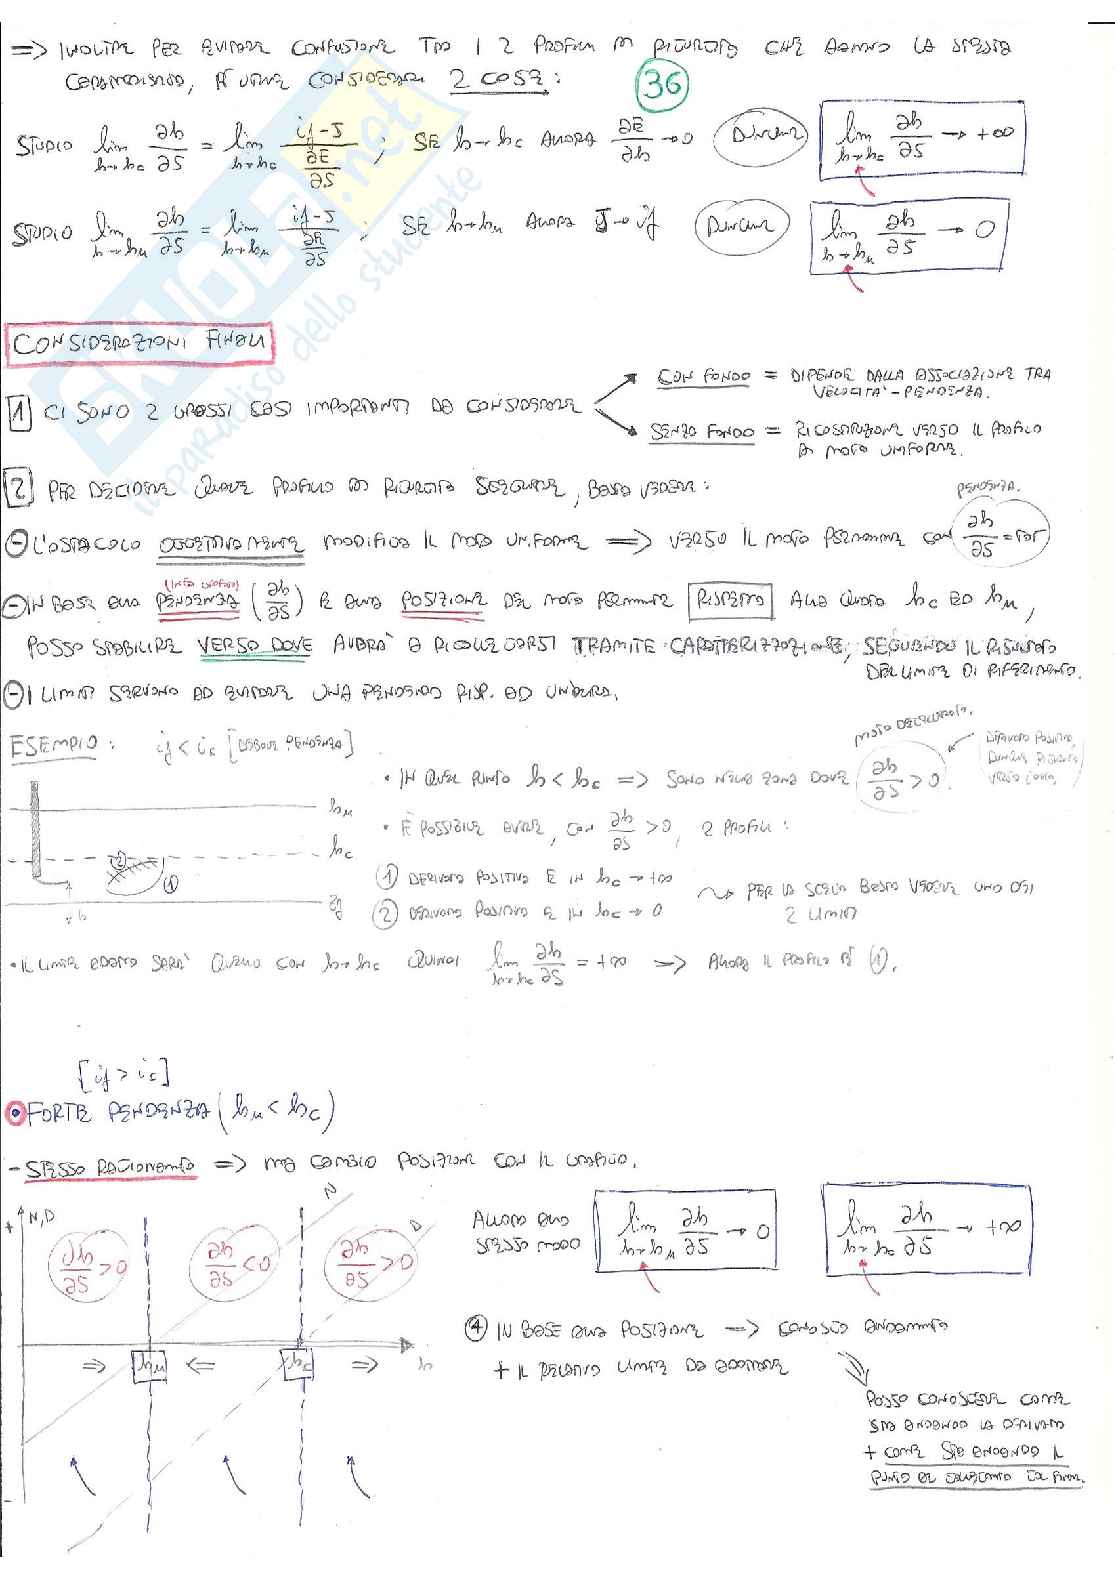 => INOLTRE PER EVITARE CONFUSIONE TRA I 2 PROFILI DI RICURATO CHE HANNO LA STESSA
CARATTERISTICA, È UTILE CONSIDERARE 2 COSE:
36
STUDIO lim h→hc ∂h/∂S = lim h→hc (if-J)/(∂E/∂S) ; SE h→hc ALLORA ∂E/∂h →0
lim h→hc ∂h/∂S → +∞
STUDIO lim h→hu ∂h/∂S = lim h→hu (if-J)/(∂E/∂S) ; SE h→hu ALLORA J→if
lim h→hu ∂h/∂S → 0
CONSIDERAZIONI FINALI
1 CI SONO 2 GROSSI CASI IMPORTANTI DA CONSIDERARE
CON FONDO = DIPENDE DALLA ASSOCIAZIONE TRA
VELOCITÀ-PENDENZA.
SENZA FONDO = RICOSTRUZIONE VERSO IL PROFILO
DI MOTO UNIFORME.
2 PER DECIDERE QUALE PROFILO DI RICURATO SEGUIRE, BASTA VEDERE:
PENDENZA.
- L'OSTACOLO OGGETTIVAMENTE MODIFICA IL MOTO UNIFORME => VERSO IL MOTO PERMANENTE CON ∂h/∂S =
- IN BASE ALLA PENDENZA (∂h/∂S) E ALLA POSIZIONE DEL MOTO PERMANENTE RISPETTO ALLA QUOTA hc ED hu,
POSSO STABILIRE VERSO DOVE ANDRÀ A RICOLLEGARSI TRAMITE CARATTERIZZAZIONE, SEGUENDO IL RISULTATO
DEL LIMITE DI RIFERIMENTO.
- I LIMITI SERVONO AD EVITARE UNA PENDENZA RISP. AD UN'ALTRA.
ESEMPIO: if < ic [DEBOLE PENDENZA]
MOTO DECELERATO.
DERIVATA POSITIVA,
DUNQUE
VERSO
• IN QUEL PUNTO h < hc => SONO NELLA ZONA DOVE ∂h/∂S > 0.
hu
• È POSSIBILE AVERE, CON ∂h/∂S > 0, 2 PROFILI:
hc
2
1
1 DERIVATA POSITIVA E IN hc → +∞
2 DERIVATA POSITIVA E IN hc → 0
PER LA SCELTA BASTA VEDERE UNO DEI
2 LIMITI
zf
• IL LIMITE ADATTO SARÀ QUELLO CON h→hc QUINDI lim h→hc ∂h/∂S = +∞ => ALLORA IL PROFILO È 1.
[if > ic]
• FORTE PENDENZA (hu < hc)
- STESSO RAGIONAMENTO => MA CAMBIO POSIZIONE CON IL GRAFICO.
+ N,D
N
D
∂h/∂S > 0
∂h/∂S < 0
∂h/∂S > 0
ALLORA ALLO
STESSO MODO
lim h→hu ∂h/∂S → 0
lim h→hc ∂h/∂S → +∞
=> hu <= hc =>
h
4 IN BASE ALLA POSIZIONE => CONOSCO ANDAMENTO
+ IL RELATIVO LIMITE DA ADOTTARE
POSSO CONOSCERE COME
STA ANDANDO LA DERIVATA
+ COME STA ANDANDO IL